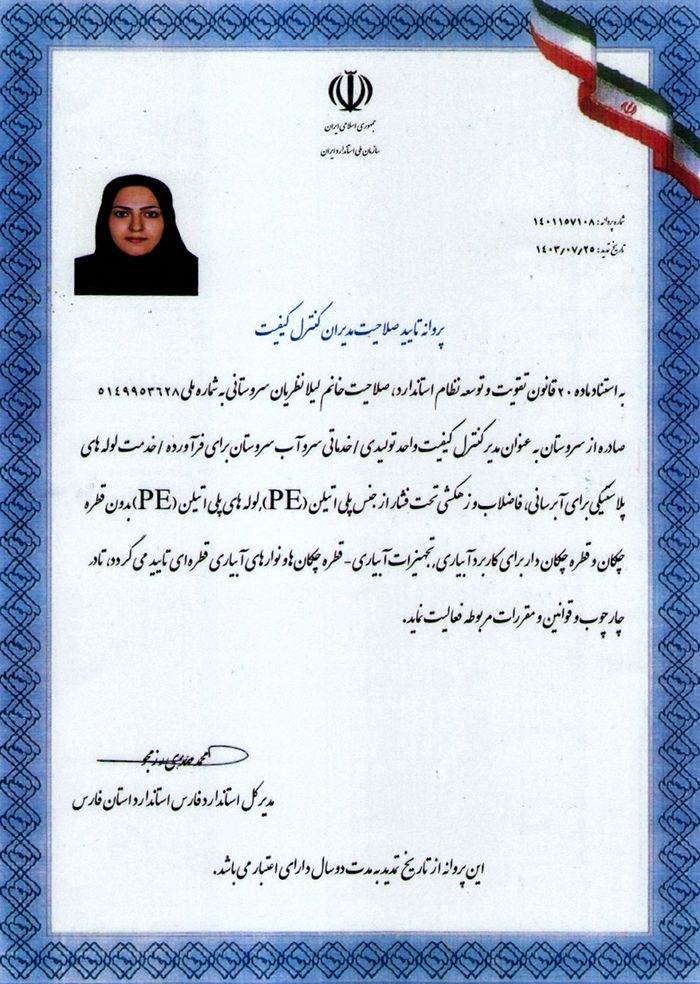 جمهوری اسلامی ایران
سازمان ملی استاندارد ایران
شماره پروانه: ۱۴۰۱۱۵۷۱۰۸
تاریخ تمدید: ۱۴۰۳/۰۷/۲۵
پروانه تایید صلاحیت مدیران کنترل کیفیت
به استناد ماده ۲۰ قانون تقویت و توسعه نظام استاندارد، صلاحیت خانم لیلا نظریان سروستانی به شماره ملی ۵۱۴۹۹۵۳۶۲۸
صادره از سروستان به عنوان مدیر کنترل کیفیت واحد تولیدی / خدماتی سرو آب سروستان برای فرآورده / خدمت لوله های
پلاستیکی برای آبرسانی، فاضلاب و زهکشی تحت فشار از جنس پلی اتیلن (PE),لوله های پلی اتیلن (PE) بدون قطره
چکان و قطره چکان دار برای کاربرد آبیاری,تجهیزات آبیاری- قطره چکان ها و نوارهای آبیاری قطره ای تایید می گردد، تا در
چارچوب و قوانین و مقررات مربوطه فعالیت نماید.
مدیر کل استاندارد فارس استاندارد استان فارس
این پروانه از تاریخ تمدید به مدت دو سال دارای اعتبار می باشد.